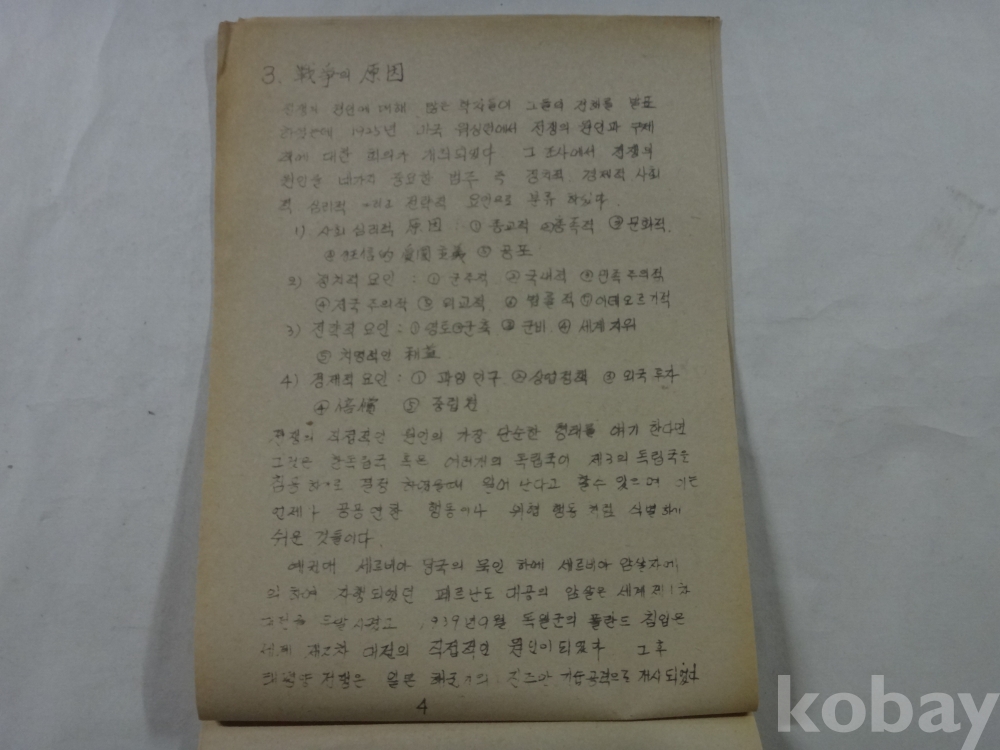 3. 戰爭의 原因
전쟁의 원인에 대해 많은 학자들이 그들의 견해를 발표
1925년 미국 워싱턴에서 전쟁의 원인과 구제
책에 대한 회의가 개최되었다 그 조사에서 전쟁의
원인을 네가지 중요한 범주 즉 정치적 경제적 사회
적 심리적 그리고 전략적 요인으로 분류 하였다
1) 사회 심리적 原因 : ① 종교적 ②종족적 ③문화적
④ 狂信的 愛國主義 ⑤ 공포
2) 정치적 요인 : ① 군주적 ② 국내적 ③민족주의적
④제국주의적 ⑤ 외교적 ⑥ 법률적 ⑦이데오르기적
3) 전략적 요인 : ①영토 ②군축 ③군비 ④ 세계지위
⑤ 치명적인 利益
4) 경제적 요인 : ① 과잉인구 ②상업정책 ③외국투자
④ ⑤ 중립권
전쟁의 직접적인 원인의 가장 단순한 형태를 얘기한다면
그것은 한독립국 혹은 여러개의 독립국이 제3의 독립국을
침공하기로 결정 하였을때 일어난다고 할수 있으며 이는
언제나 공공연한 행동이나 위협 행동처럼 식별하기
쉬운 것들이다.
예컨대 세르비아 당국의 묵인 하에 세르비아 암살자에
의하여 자행되었던 페르난도 대공의 암살은 세계 제1차
대전을 1939년 9월 독일군의 폴란드 침입은
세계 제2차 대전의 직접적인 원인이 되었다 그후
태평양 전쟁은 일본 해군기의 진주만 기습공격으로 개시되었다
4
kobay